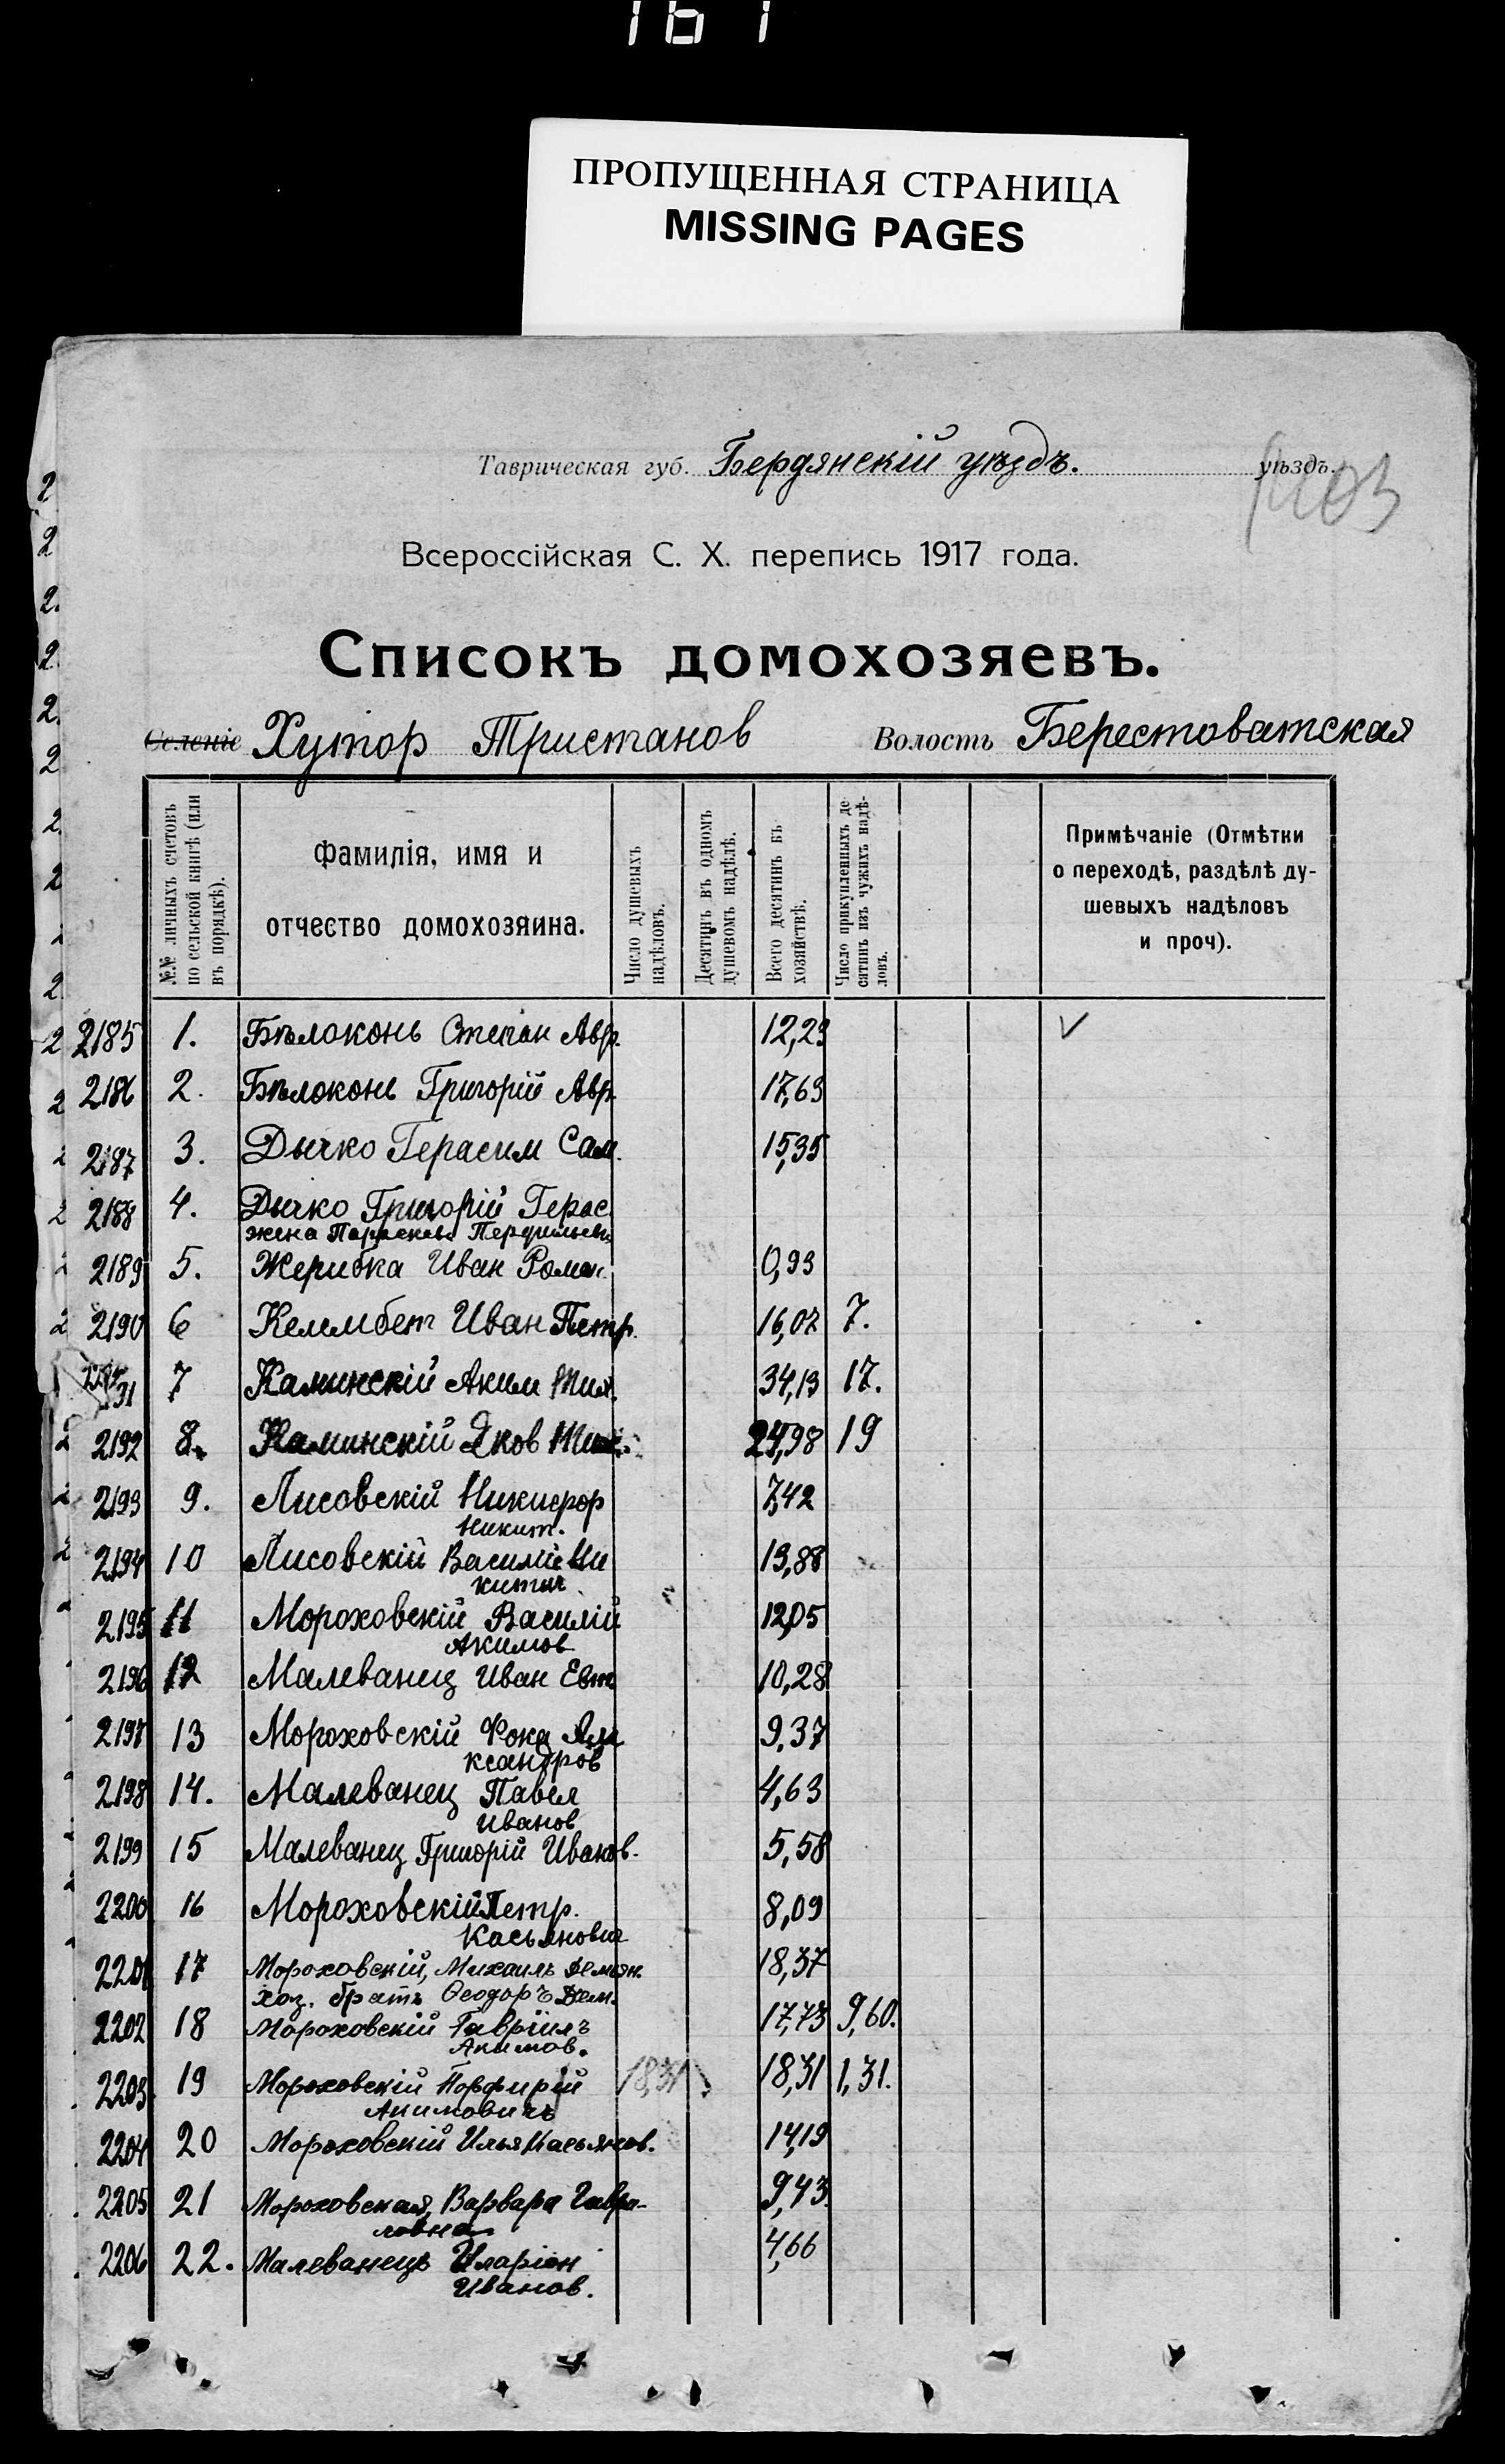 161
ПРОПУЩЕННАЯ СТРАНИЦА
MISSING PAGES
Таврическая губ. Бердянскій уѣздъ. уѣздъ.
Всероссійская С. Х. перепись 1917 года.
Списокъ домохозяевъ.
Селеніе Хутор Тристанов Волость Берестоватская
№№ личныхъ счетовъ по сельской книгѣ (или въ порядкѣ).
Фамилія, имя и отчество домохозяина.
Число душевыхъ надѣловъ.
Десятинъ въ одномъ душевомъ надѣлѣ.
Всего десятинъ въ хозяйствѣ.
Число прикупленныхъ десятинъ изъ чужихъ надѣловъ.
Примѣчаніе (Отмѣтки о переходѣ, раздѣлѣ душевыхъ надѣловъ и проч).
2185 1. Бѣлоконь Степан Авр. 12,29
2186 2. Бѣлоконь Григорій Авр. 17,69
2187 3. Дычко Герасим Сам. 15,35
2188 4. Дычко Григорій Герас.
жена Параскева
2189 5. Жерибка Иван Роман. 0,93
2190 6 Келембет Иван Петр. 16,02 7.
7 Каминскій Аким Мих. 34,13 17.
2192 8. Каминскій Яков Мих. 24,98 19
2193 9. Лисовскій Никифор 7,42
Никит.
2194 10 Лисовскій Василій Ни 19,88
китич
2195 11 Мороховскій Василій 12,05
Акимов
2196 12 Малеванец Иван Евт 10,28
2197 13 Мороховскій Фока Але 9,37
ксандров
2198 14. Малеванец Павел 4,63
Иванов
2199 15 Малеванец Григорій Иванов. 5,58
2200 16 Мороховскій Петр. 8,09
Касьянович
2201 17 Мороховскій, Михаилъ Демьян. 18,37
хоз. братъ Ѳеодоръ Дем.
2202 18 Мороховскій Гавріилъ 17,73 9,60.
Акимов.
2203 19 Мороховскій Порфирій 18,31 18,31 1,31.
Акимовичъ
2204 20 Мороховскій Илья Касьянов. 14,19
2205 21 Мороховская, Варвара Гаври- 9,43
ловна
2206 22. Малеванець Иларіон 4,66
Иванов.